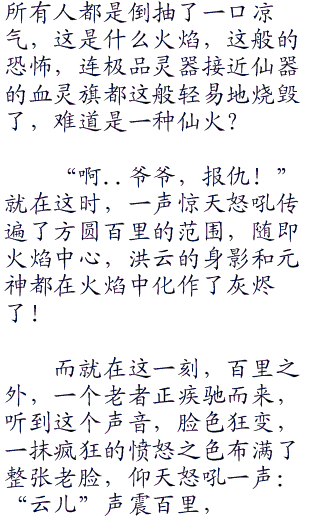 所有人都是倒抽了一口凉
气，这是什么火焰，这般的
恐怖，连极品灵器接近仙器
的血灵旗都这般轻易地烧毁
了，难道是一种仙火？
“啊..爷爷，报仇！”
就在这时，一声惊天怒吼传
遍了方圆百里的范围，随即
火焰中心，洪云的身影和元
神都在火焰中化作了灰烬
了！
而就在这一刻，百里之
外，一个老者正疾驰而来，
听到这个声音，脸色狂变，
一抹疯狂的愤怒之色布满了
整张老脸，仰天怒吼一声：
“云儿”声震百里，